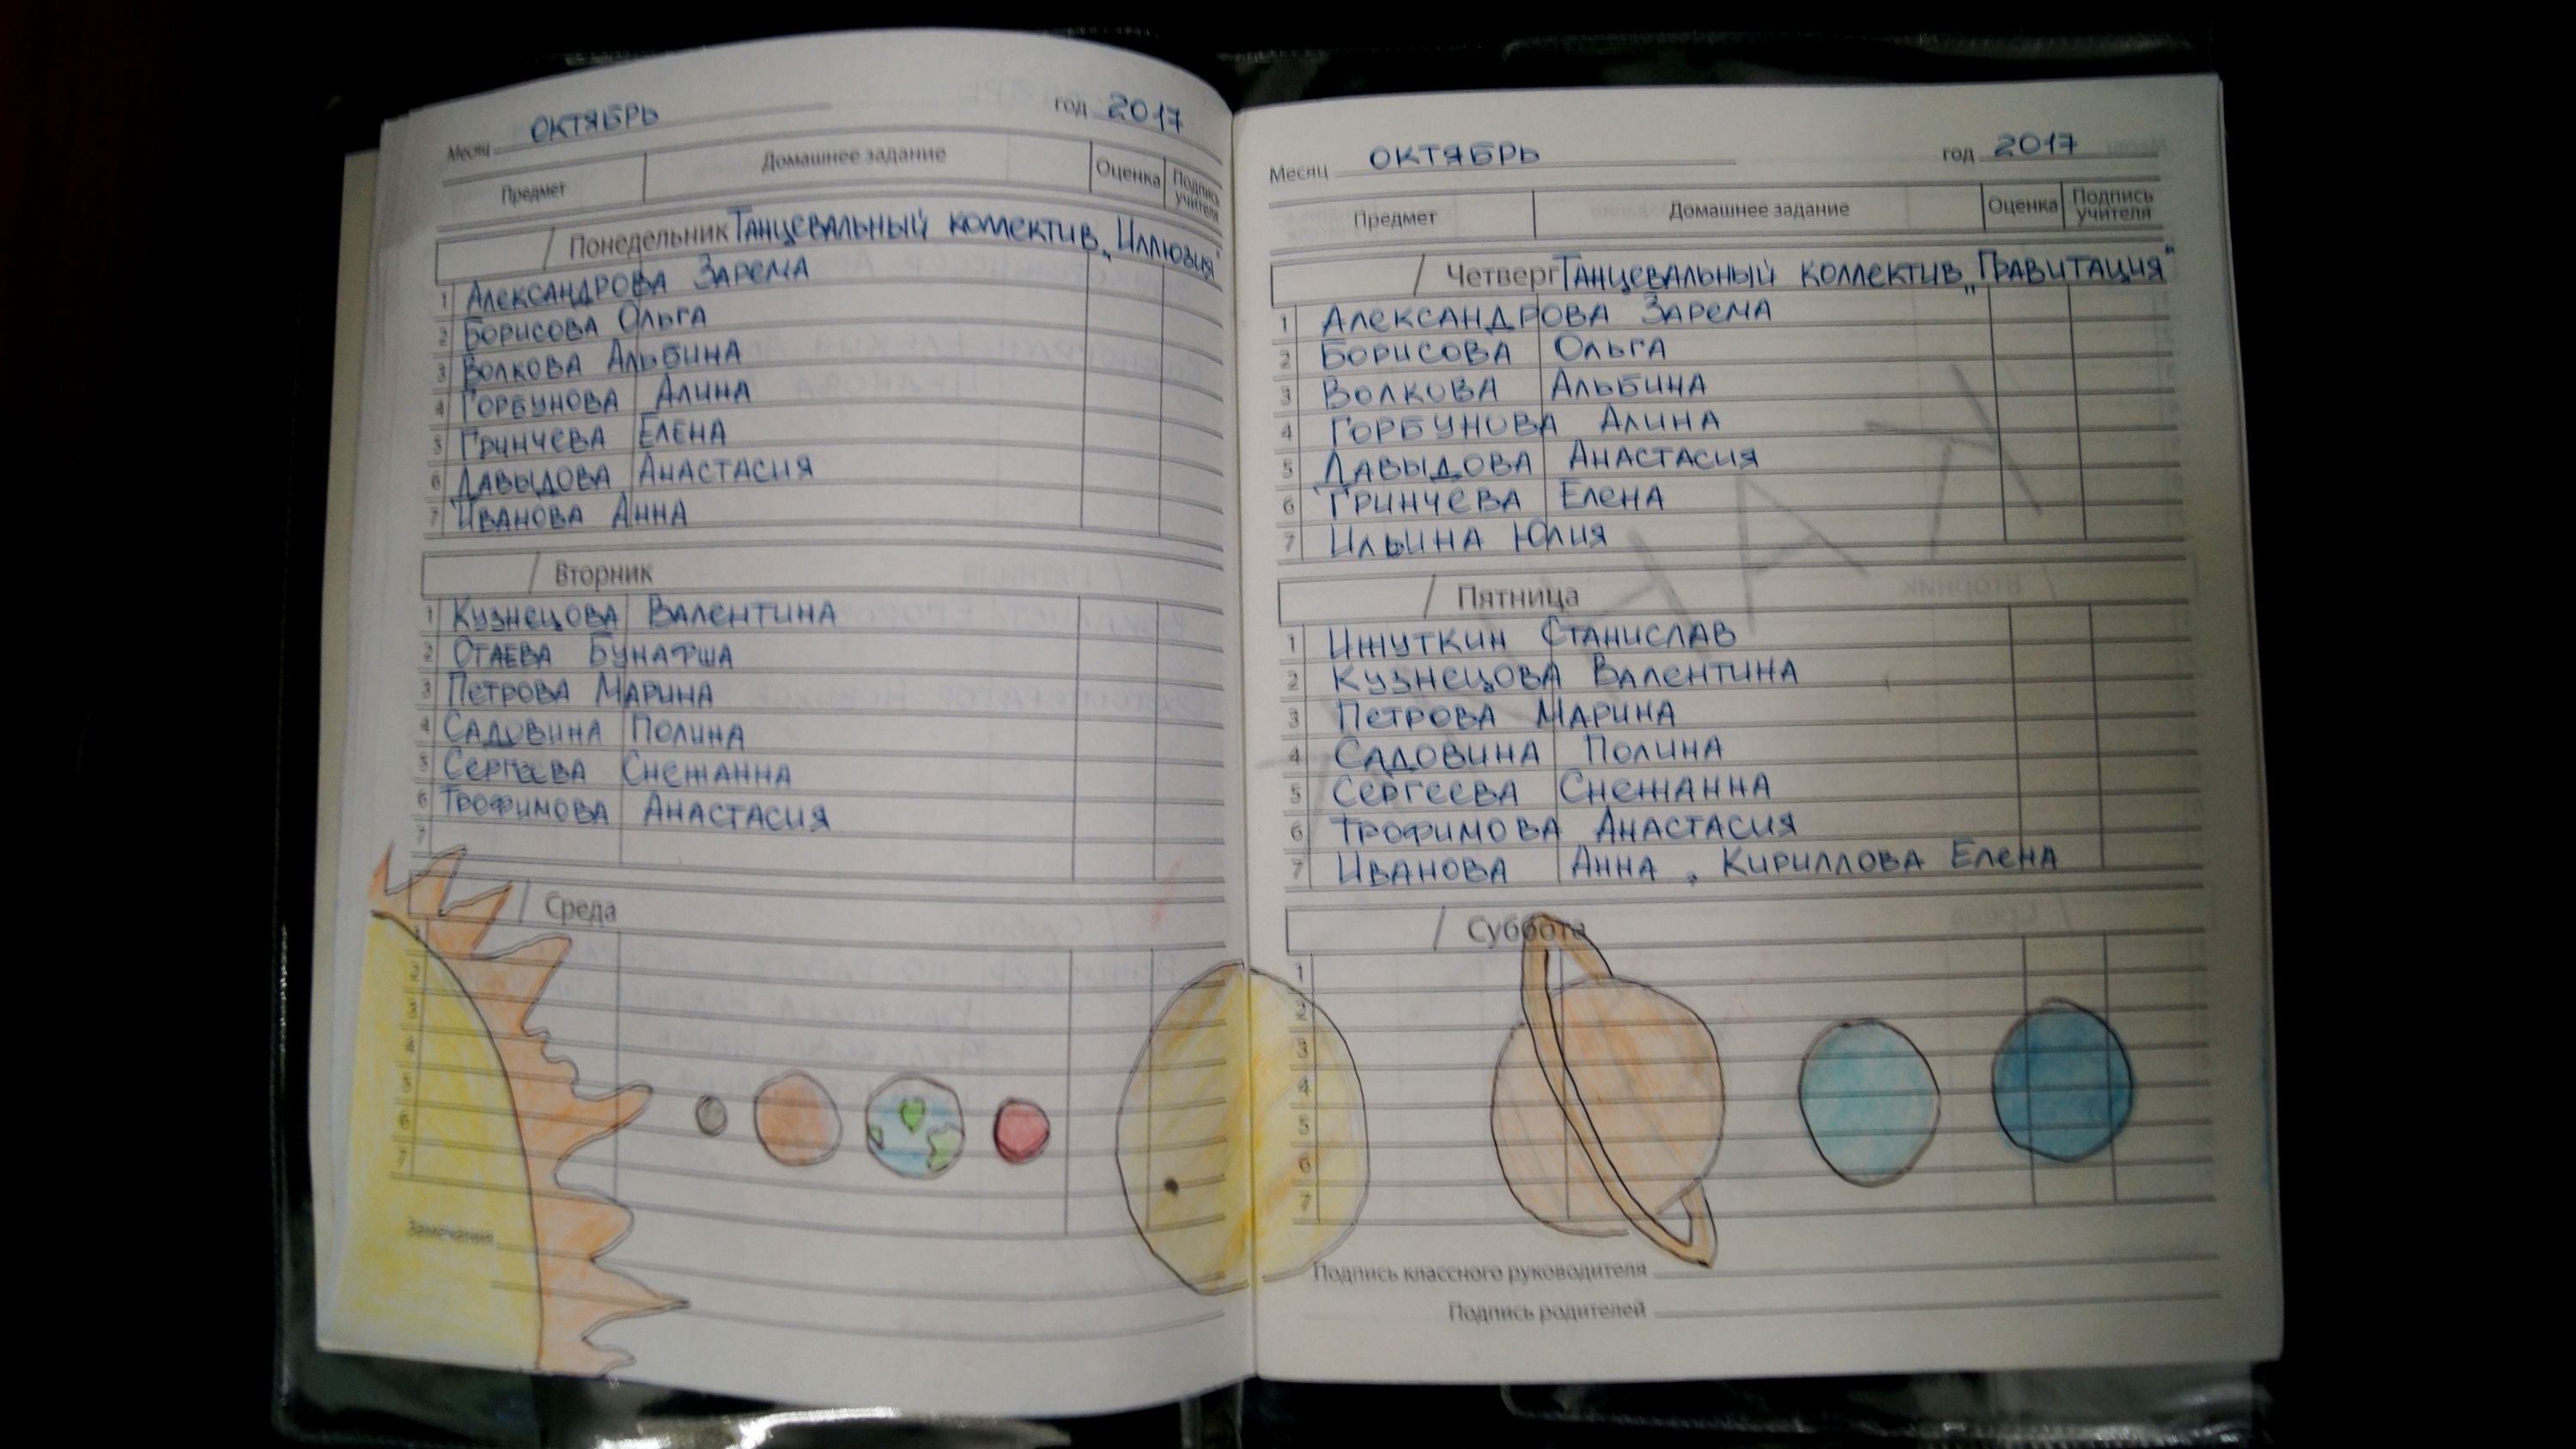 Месяц ОКТЯБРЬ год 2017
Предмет Домашнее задание Оценка Подпись учителя
Понедельник Танцевальный коллектив „Иллюзия"
1 Александрова Зарема
2 Борисова Ольга
3 Волкова Альбина
4 Горбунова Алина
5 Гринчева Елена
6 Давыдова Анастасия
7 Иванова Анна
Вторник
1 Кузнецова Валентина
2 Отаева Бунафша
3 Петрова Марина
4 Садовина Полина
5 Сергеева Снежанна
6 Трофимова Анастасия
7
Среда
1
2
3
4
5
6
7
Замечания
Месяц ОКТЯБРЬ год 2017
Предмет Домашнее задание Оценка Подпись учителя
Четверг Танцевальный коллектив „Гравитация"
1 Александрова Зарема
2 Борисова Ольга
3 Волкова Альбина
4 Горбунова Алина
5 Давыдова Анастасия
6 Гринчева Елена
7 Ильина Юлия
Пятница
1 Ижуткин Станислав
2 Кузнецова Валентина
3 Петрова Марина
4 Садовина Полина
5 Сергеева Снежанна
6 Трофимова Анастасия
7 Иванова Анна, Кириллова Елена
Суббота
1
2
3
4
5
6
7
Подпись классного руководителя
Подпись родителей